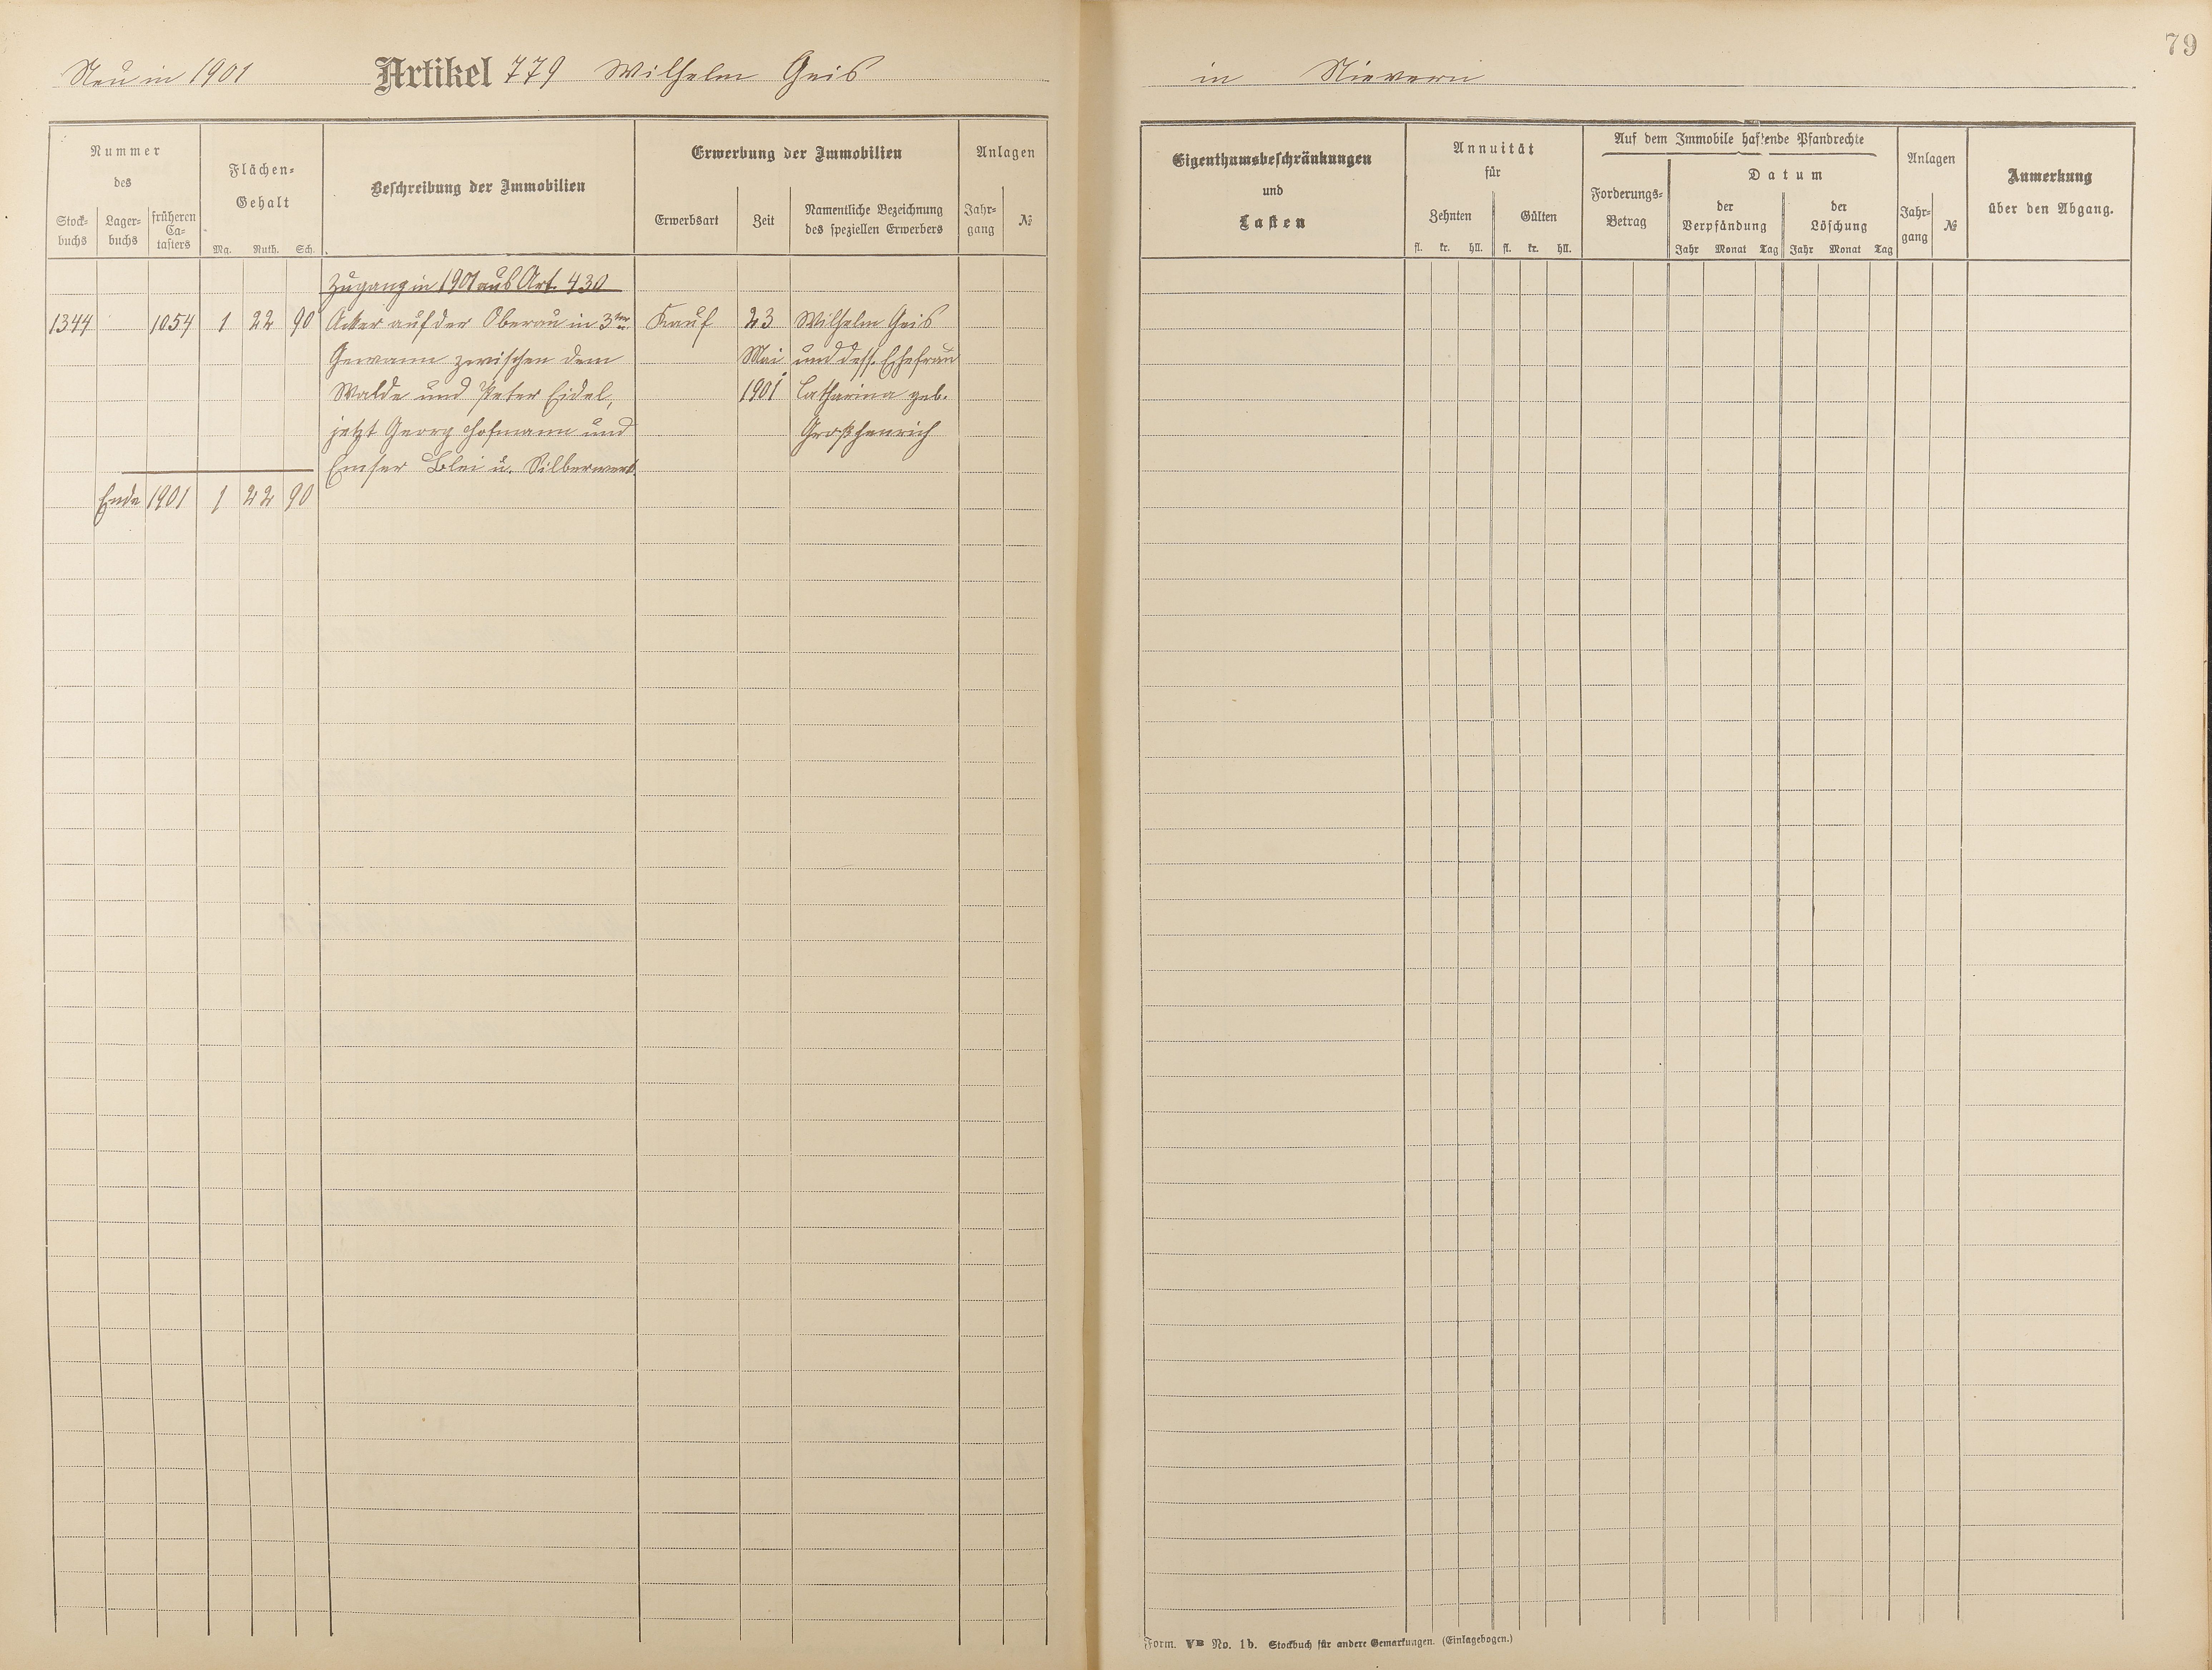 79
Neu in 1901 Artikel 779 Wilhelm Geis
in Nievern
Nummer
des
Stock-
buchs
Lager-
buchs
früheren
Ca-
tasters
Flächen-
Gehalt
Mg. Ruth. Sch.
Beschreibung der Immobilien
Erwerbung der Immobilien
Erwerbsart
Zeit
Namentliche Bezeichnung
des speziellen Erwerbers
Anlagen
Jahr-
gang
№
Zugang in 1901 aus Art. 430
1344 1054 1 22 90 Acker auf der Oberau in 3ter Kauf 23 Wilhelm Geis
Gewann zwischen dem Mai und dess. Ehefrau
Walde und Peter Eidel, 1901 Catharina geb.
jetzt Georg Hofmann und Großhenrich
Emser Blei u. Silberwerk.
Ende 1901 1 22 90
Eigenthumsbeschränkungen
und
Lasten
Annuität
für
Zehnten
fl. kr. hll.
Gülten
fl. kr. hll.
Auf dem Immobile haftende Pfandrechte
Forderungs-
Betrag
Datum
der
Verpfändung
Jahr Monat Tag
der
Löschung
Jahr Monat Tag
Anlagen
Jahr-
gang
№
Anmerkung
über den Abgang.
Form. VB No. 1b. Stockbuch für andere Gemarkungen. (Einlagebogen.)